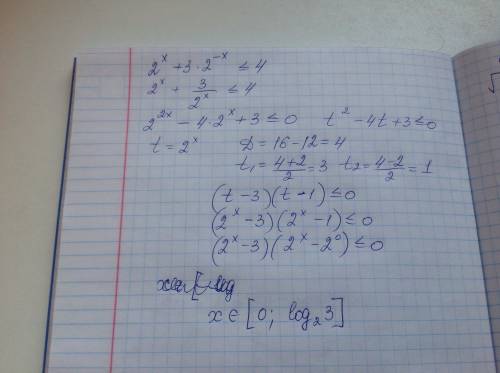 2^x + 3·2^{-x} ≤ 4
2^x + 3/2^x ≤ 4
2^{2x} - 4·2^x + 3 ≤ 0    t^2 - 4t + 3 ≤ 0
t = 2^x    D = 16 - 12 = 4
t_1 = (4+2)/2 = 3    t_2 = (4-2)/2 = 1
(t - 3)(t - 1) ≤ 0
(2^x - 3)(2^x - 1) ≤ 0
(2^x - 3)(2^x - 2^0) ≤ 0
x ∈ [0; log_2 3]